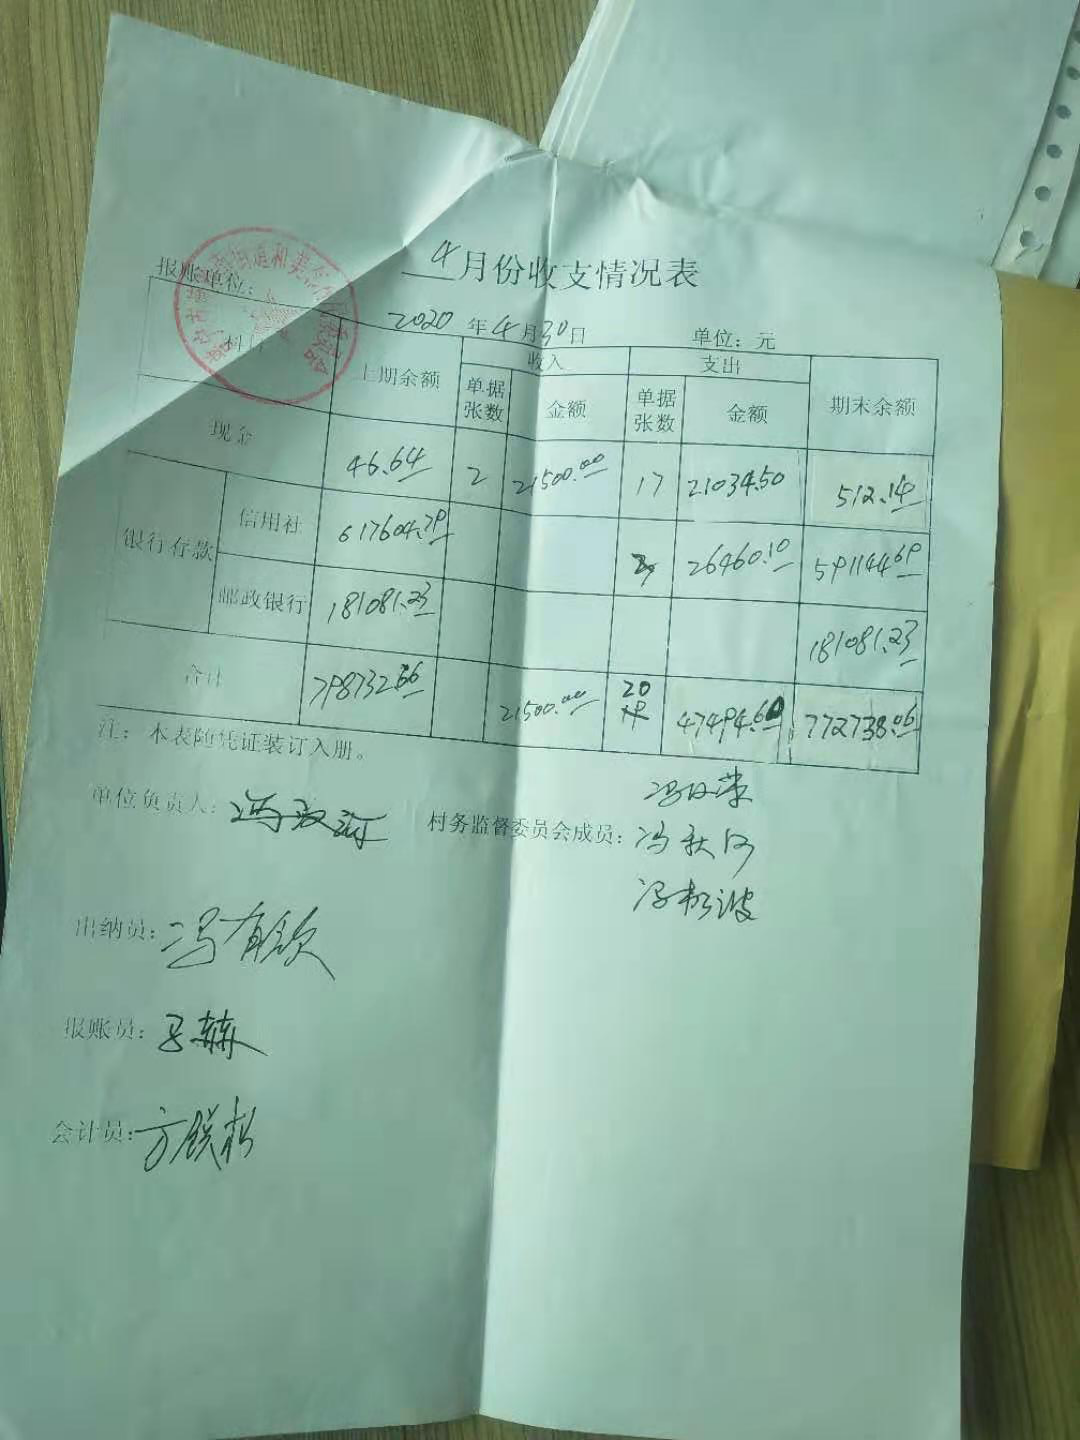 4月份收支情况表
报账单位:
2020 年4月30日 单位: 元
科目 上期余额 收入 支出 期末余额
单据张数 金额 单据张数 金额
现金 46.64 2 21500.00 17 21034.50 512.14
银行存款 信用社 617604.79 3 26460.10 591144.69
邮政银行 181081.23 181081.23
合计 798732.66 21500.00 20 47494.60 772738.06
注: 本表随凭证装订入册。
单位负责人:
村务监督委员会成员:
出纳员: 冯有钦
报账员:
会计员: